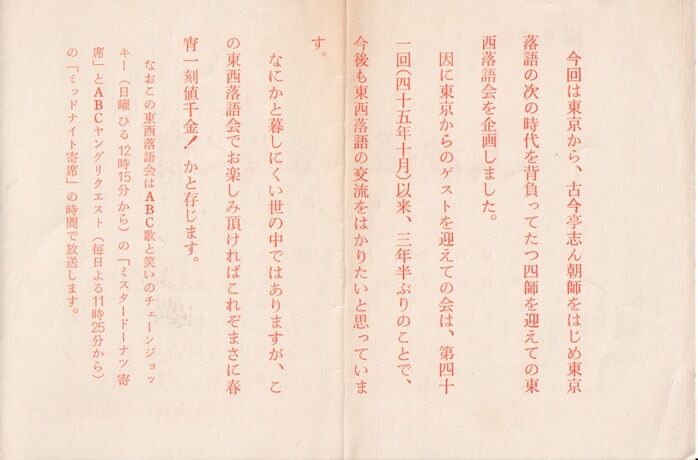 今回は東京から、古今亭志ん朝師をはじめ東京
落語の次の時代を背負ってたつ四師を迎えての東
西落語会を企画しました。
因に東京からのゲストを迎えての会は、第四十
一回(四十五年十月)以来、三年半ぶりのことで、
今後も東西落語の交流をはかりたいと思っていま
す。
なにかと暮しにくい世の中ではありますが、こ
の東西落語会でお楽しみ頂ければこれぞまさに春
宵一刻値千金! かと存じます。
なおこの東西落語会はABC歌と笑いのチェーンジョッ
キー(日曜ひる12時15分から)の「ミスタードーナツ寄
席」とABCヤングリクエスト(毎日よる11時25分から)
の「ミッドナイト寄席」の時間で放送します。